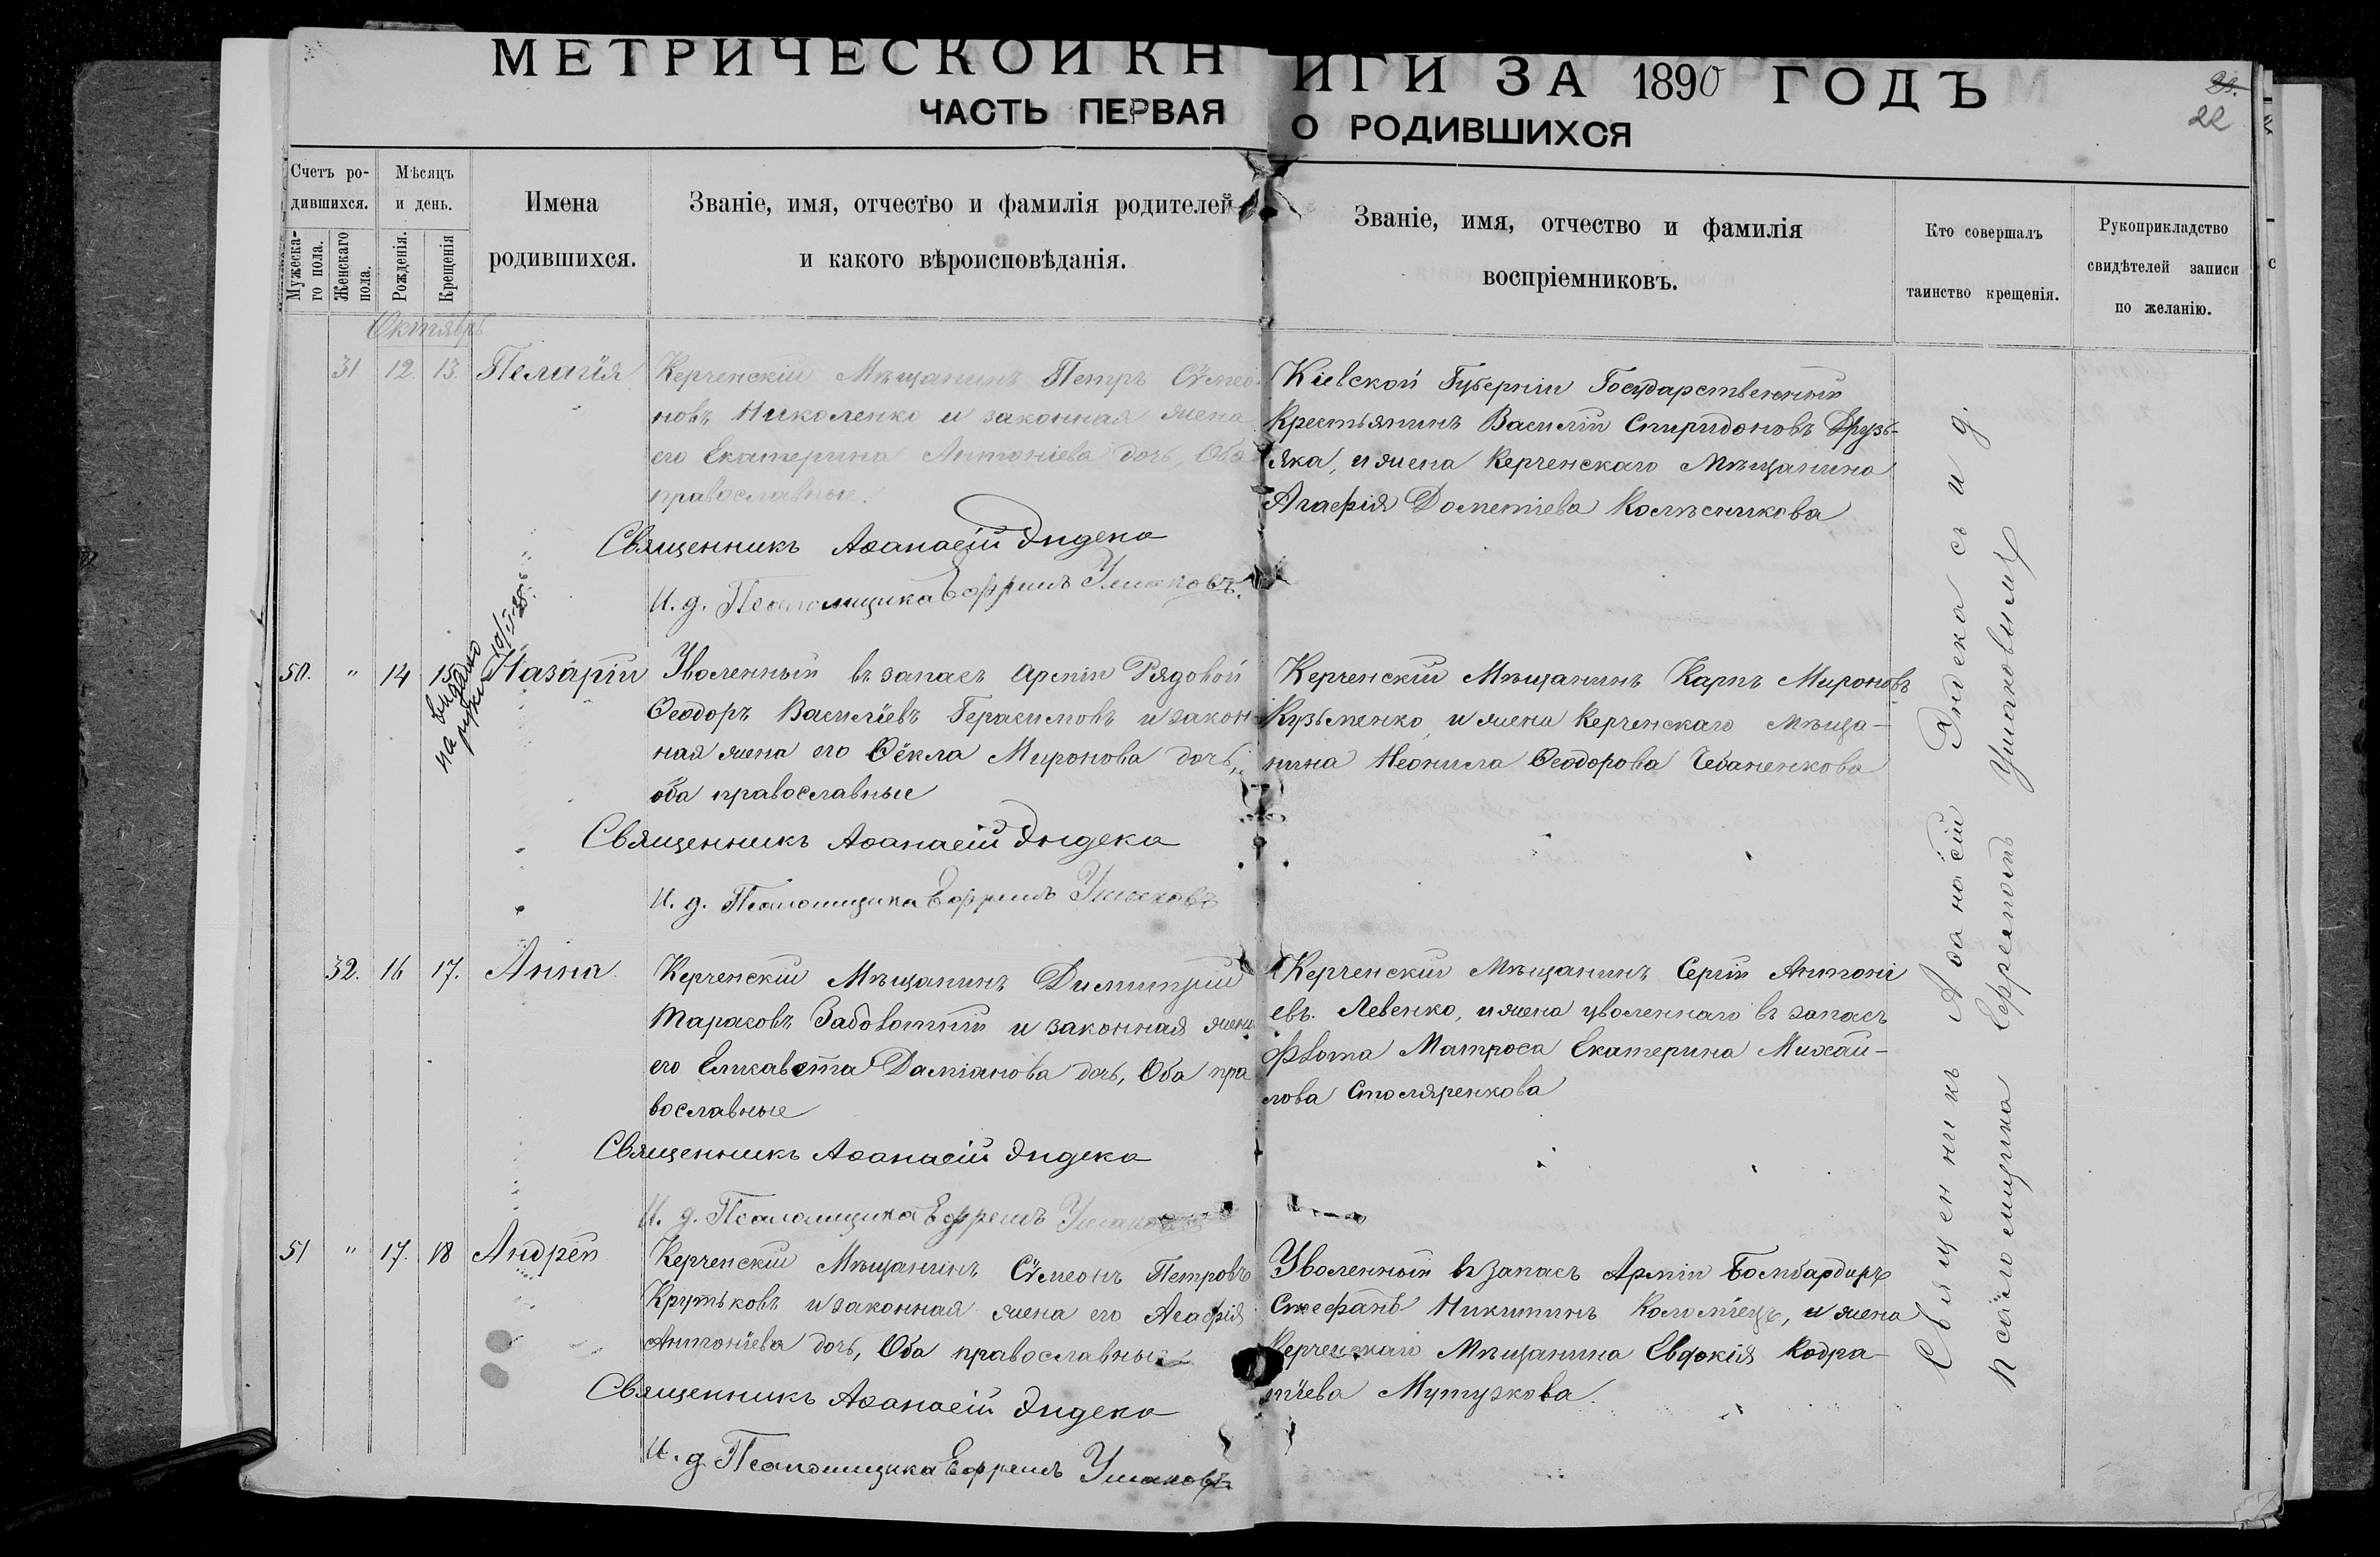 МЕТРИЧЕСКОЙ КНИГИ ЗА 1890 ГОДЪ
ЧАСТЬ ПЕРВАЯ О РОДИВШИХСЯ
22
Счетъ ро-
дившихся.
Мужеска-
го пола.
Женскаго
пола.
Мѣсяцъ
и день.
Рожденія.
Крещенія
Имена
родившихся.
Званіе, имя, отчество и фамилія родителей
и какого вѣроисповѣданія.
Званіе, имя, отчество и фамилія
воспріемниковъ.
Кто совершалъ
таинство крещенія.
Рукоприкладство
свидѣтелей записи
по желанію.
Октябрь
31 12. 13. Пелагія
Керченскій Мѣщанинъ Петръ Сѵмео-
новъ Николенко и законная жена
его Екатерина Антоніева дочь, Оба
православные.
Священникъ Аѳанасій Эндека
И. д. Псаломщика Ефремъ Ушаковъ.
Кіевской Губерніи Государственный
Крестьянинъ Василій Спиридоновъ Друзь-
яка, и жена Керченскаго Мѣщанина
Агафія Дометіева Колѣсникова
50. " 14 15 Назарій
выдано
на руки
Уволенный въ запасъ Арміи Рядовой
Ѳеодоръ Василіевъ Герасимовъ и закон-
ная жена его Ѳёкла Миронова дочь,
оба православные
Священникъ Аѳанасій Эндека
И. д. Псаломщика Ефремъ Ушаковъ
Керченскій Мѣщанинъ Карпъ Мироновъ
Кузьменко, и жена Керченскаго мѣща-
нина Неонила Ѳеодорова Чебаненкова
32. 16 17. Анна
Керченскій Мѣщанинъ Димитрій
Тарасовъ Заболотній и законная жена
его Елисавета Даміанова дочь, Оба пра
вославные
Священникъ Аѳанасій Эндека
И. д. Псаломщика Ефремъ Ушаковъ
Керченскій Мѣщанинъ Сергій Антоні
евъ Левенко, и жена уволеннаго въ запасъ
Флота Матроса Екатерина Михай-
лова Столяренкова
51 " 17. 18 Андрей
Керченскій Мѣщанинъ Сѵмеонъ Петровъ
Крутьковъ и законная жена его Агафія
Антоніева дочь, Оба православные
Священникъ Аѳанасій Эндека
И. д Псаломщика Ефремъ Ушаковъ
Уволенный въ запасъ Арміи Бомбардиръ
Стефанъ Никитинъ Коломіецъ, и жена
Керченскаго Мѣщанина Евдокія Кодра-
тіева Мутузкова.
Священникъ Аѳанасій Эндека съ и д.
Псаломщика Ефремомъ Ушаковымъ